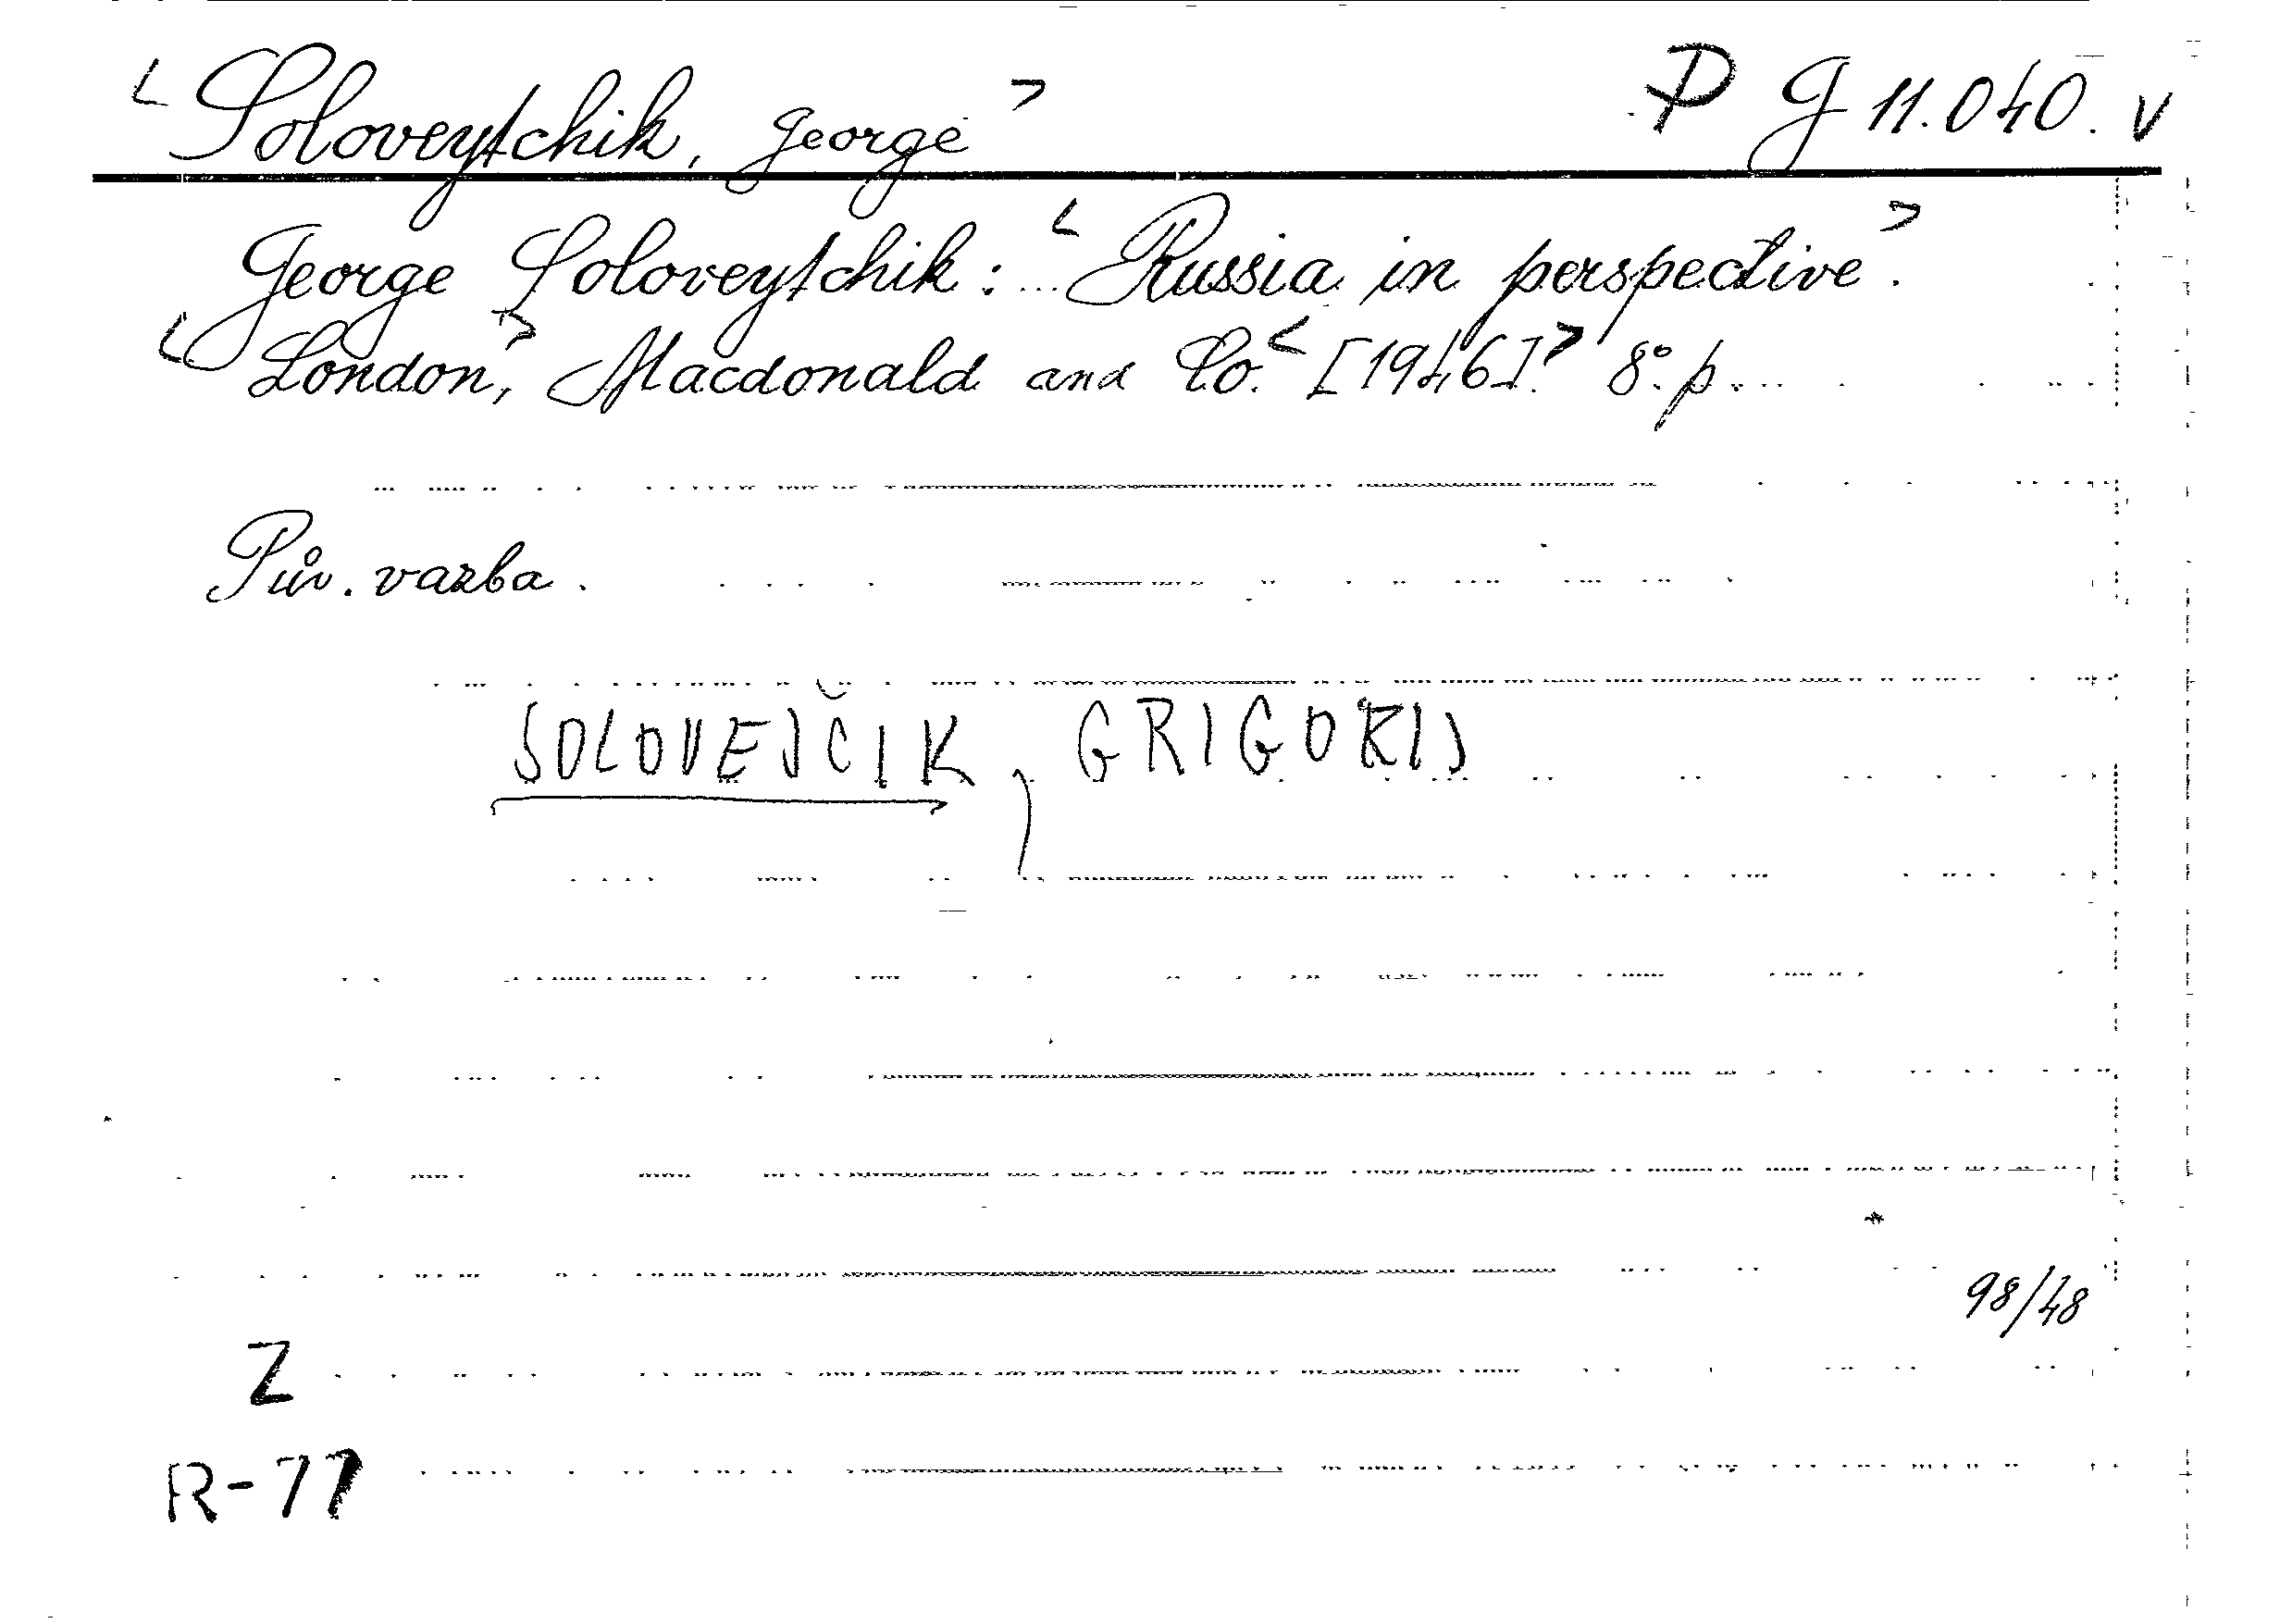 < Soloveytchik, George > P G 11.040. v
George Soloveytchik: < Russia in perspective. >
< London, > Macdonald and Co. < [1946]. > 8°. p.
Pův. vazba.
SOLOVEJČIK, GRIGORIJ
98/48
Z
R-77